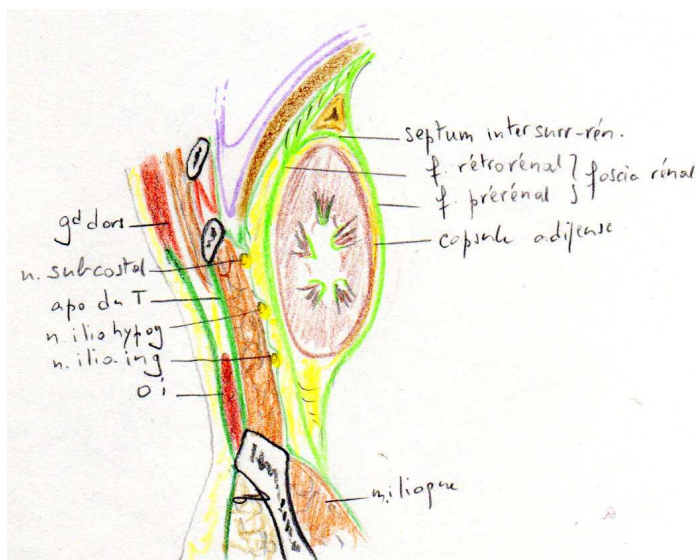 septum intersurr-rén.
f. rétrorénal } fascia rénal
f. prérénal
capsule adipeuse
gd dors
n. subcostal
apo du T
n. iliohypog
n. ilio.ing
o i
m. iliaque